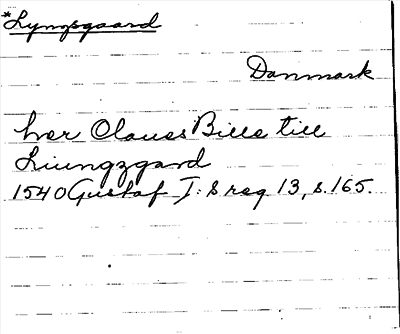 *Lyngsgaard
Danmark
her Clauss Bille till
Liungzgard
1540 Gustaf I:s reg 13, s. 165.